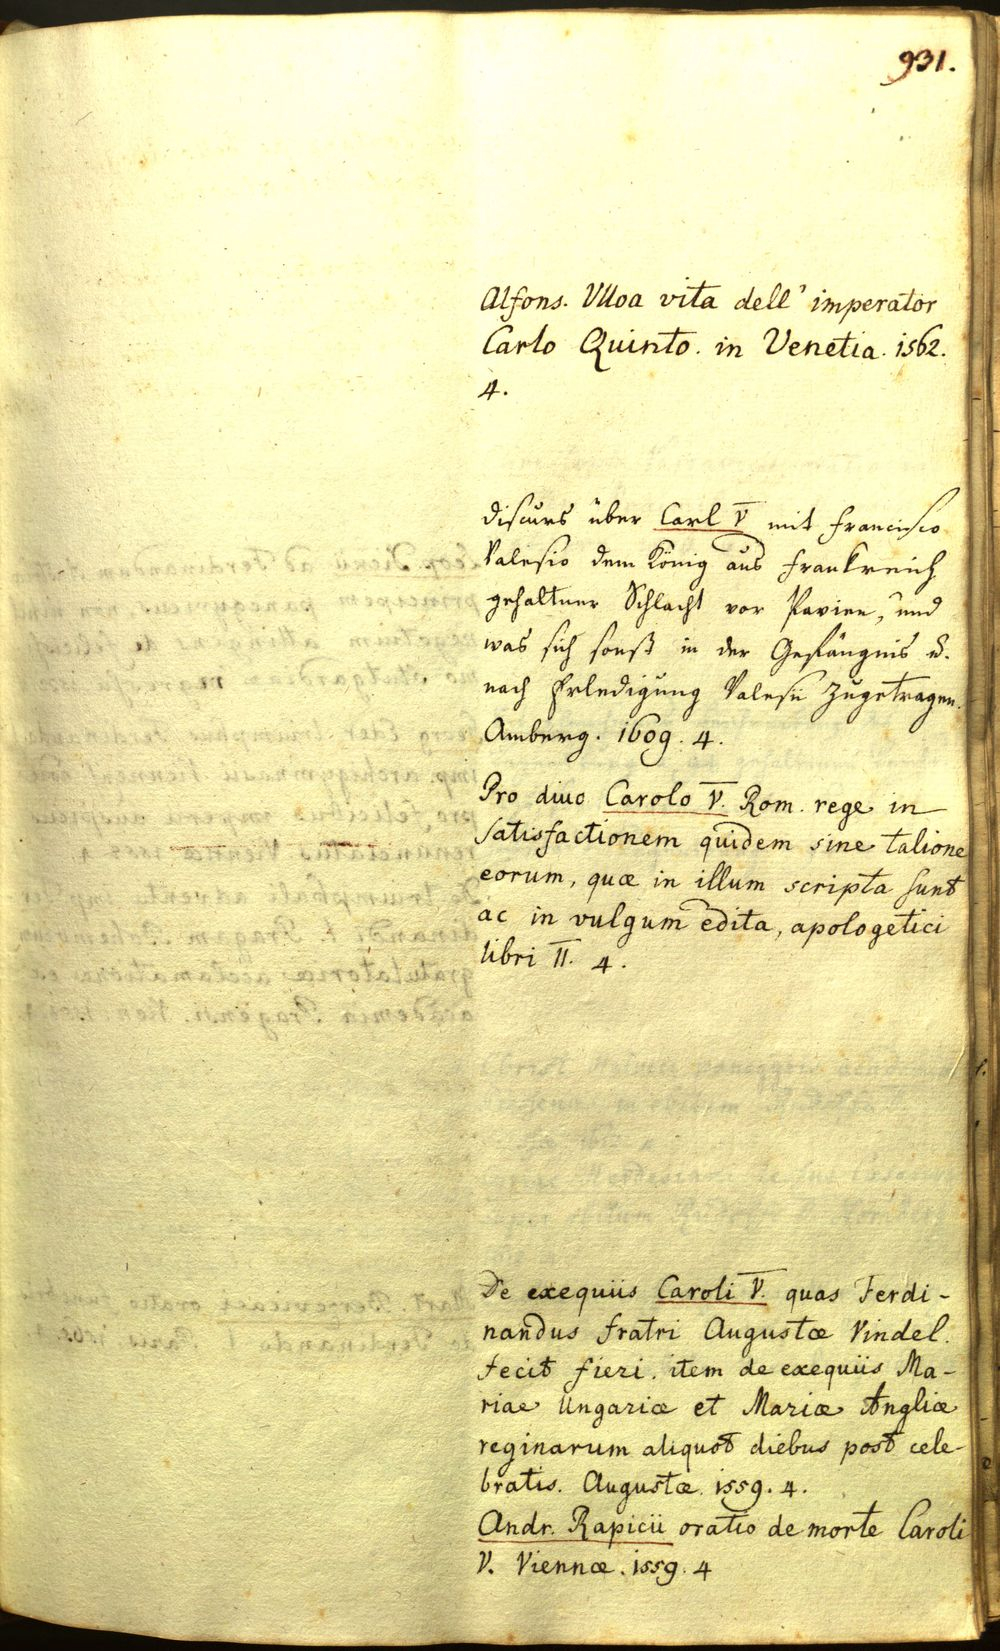 931.
Alfons. Ulloa vita dell' imperator
Carlo Quinto. in Venetia. 1562.
4.
Discurs über Carl V mit Francisco
Valesio dem König aus Frankreich
gehaltner Schlacht vor Pavien, und
was sich sonst in der Gefängnis u.
nach Erledigung Valesii zugetragen.
Amberg. 1609. 4.
Pro divo Carolo V. Rom. rege in
satisfactionem quidem sine talione
eorum, quæ in illum scripta sunt
ac in vulgum edita, apologetici
libri II. 4.
De exequiis Caroli V. quas Ferdi-
nandus fratri Augustæ Vindel.
fecit fieri. item de exequiis Ma-
riae Ungariæ et Mariæ Angliæ
reginarum aliquot diebus post cele-
bratis. Augustæ. 1559. 4.
Andr. Rapicii oratio de morte Caroli
V. Viennæ. 1559. 4